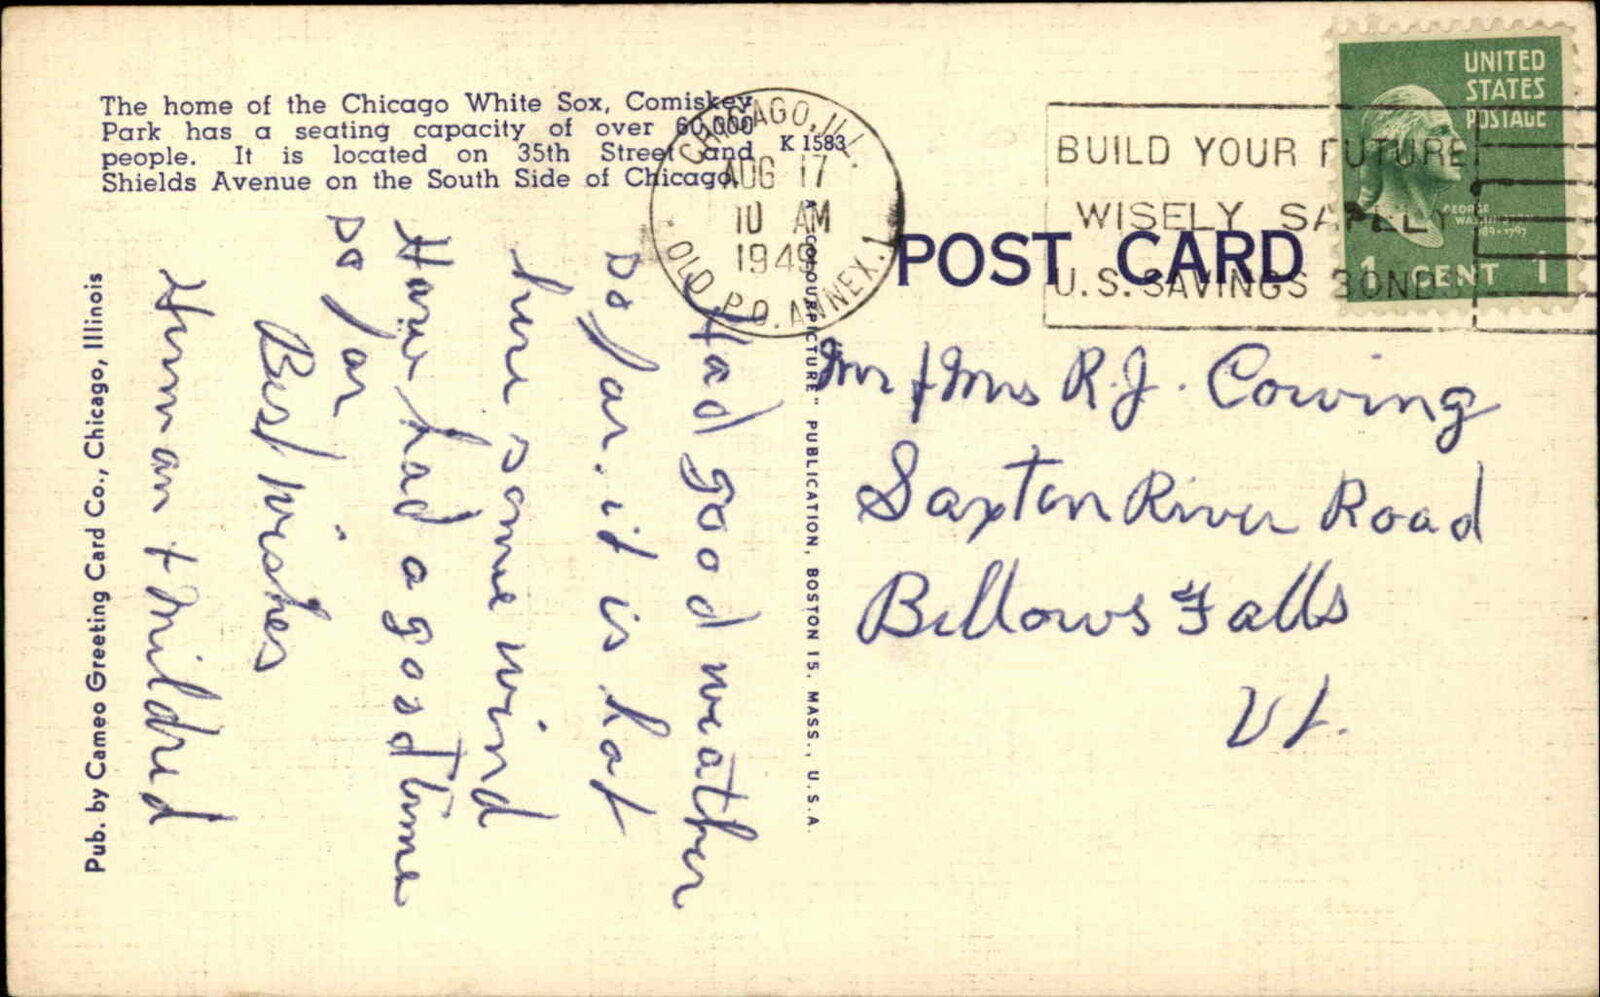 The home of the Chicago White Sox, Comiskey
Park has a seating capacity of over 60,000
people. It is located on 35th Street and
Shields Avenue on the South Side of Chicago.
K 1583
CHICAGO, ILL.
AUG 17
10 AM
1949
OLD P.O. ANNEX.
BUILD YOUR FUTURE
WISELY SAFELY
U.S. SAVINGS BOND
UNITED
STATES
POSTAGE
GEORGE
WASHINGTON
1789-1797
1 CENT 1
POST CARD
Pub. by Cameo Greeting Card Co., Chicago, Illinois
"COLOURPICTURE" PUBLICATION, BOSTON 15, MASS., U.S.A.
Had good weather
so far. it is hot
here some wind
Have had a good time
so far.
Best Wishes
Herman + Mildred
Mr & Mrs R.J. Cowing
Saxton River Road
Bellows Falls
Vt.